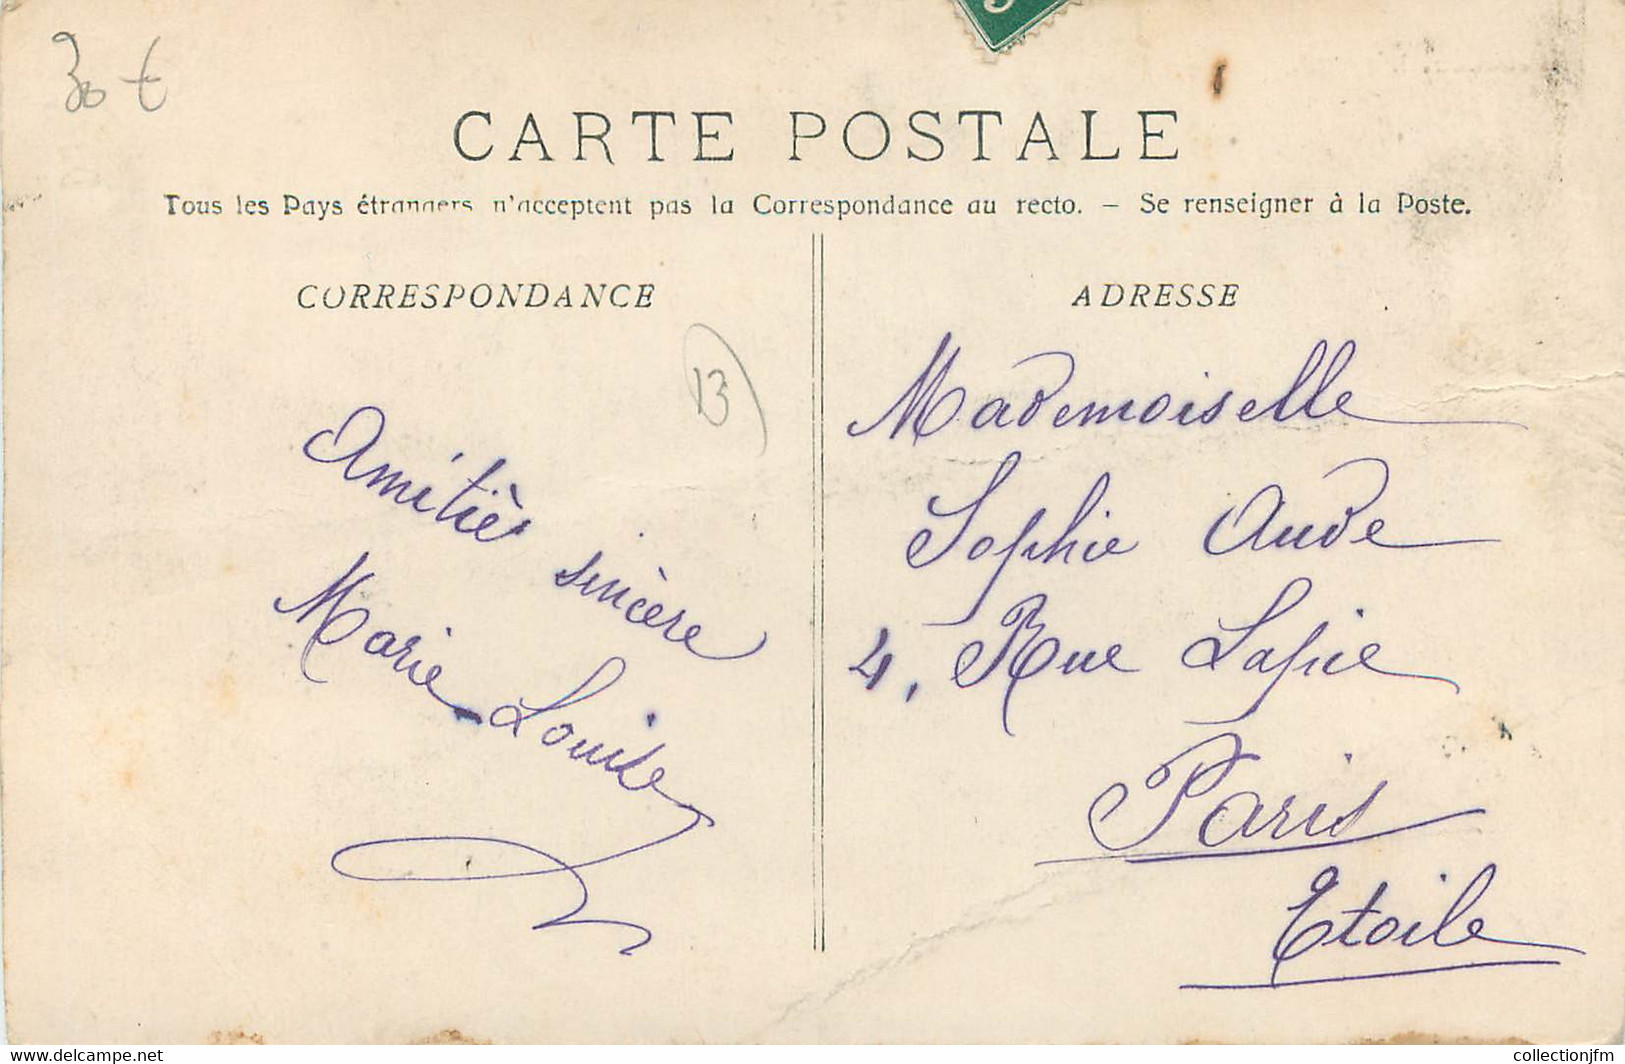 30 €
CARTE POSTALE
Tous les Pays étrangers n'acceptent pas la Correspondance au recto. – Se renseigner à la Poste.
CORRESPONDANCE
13
Amitiès sincère
Marie-Louise
ADRESSE
Mademoiselle
Sophie Aude
4, Rue Lapie
Paris
Etoile
www.delcampe.net
collectionjfm